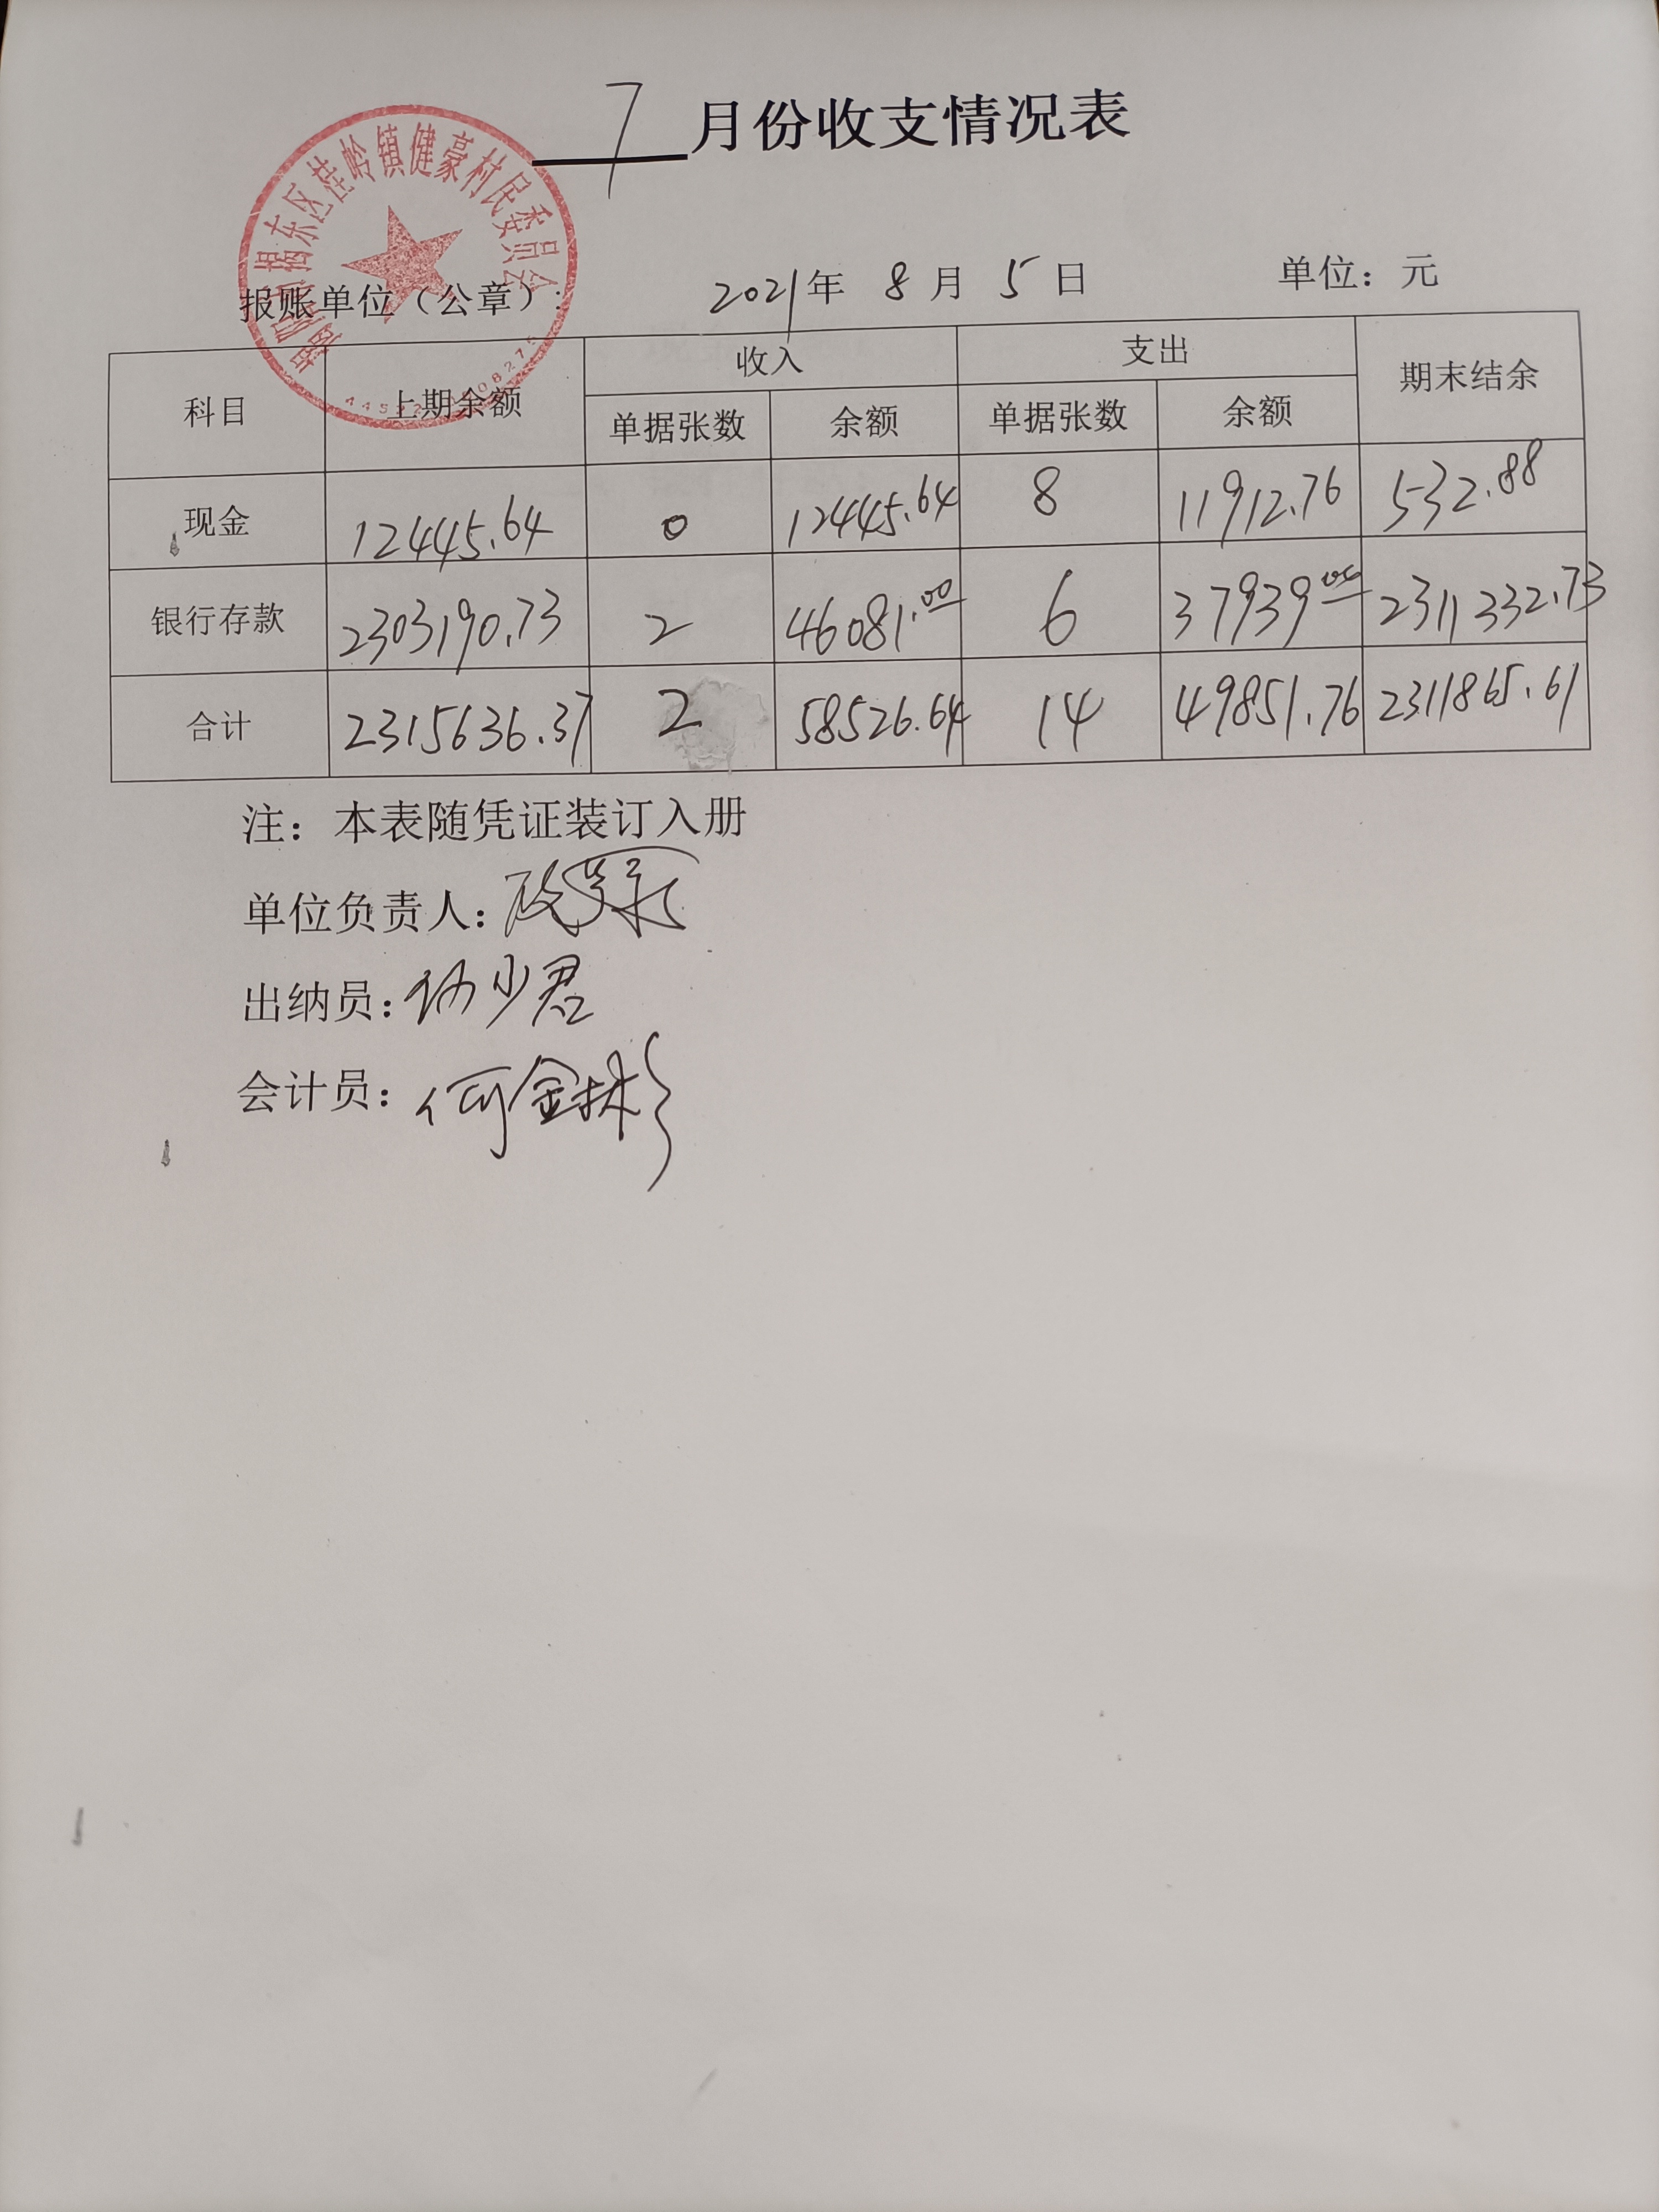 7月份收支情况表
揭阳市揭东区桂岭镇健豪村民委员会
报账单位（公章）: 2021年 8月 5日 单位：元
科目 上期余额 收入 支出 期末结余
单据张数 余额 单据张数 余额
现金 12445.64 0 12445.64 8 11912.76 532.88
银行存款 2303190.73 2 46081.00 6 37939.00 2311332.73
合计 2315636.37 2 58526.64 14 49851.76 2311865.61
注：本表随凭证装订入册
单位负责人：
出纳员：少君
会计员：何金彬